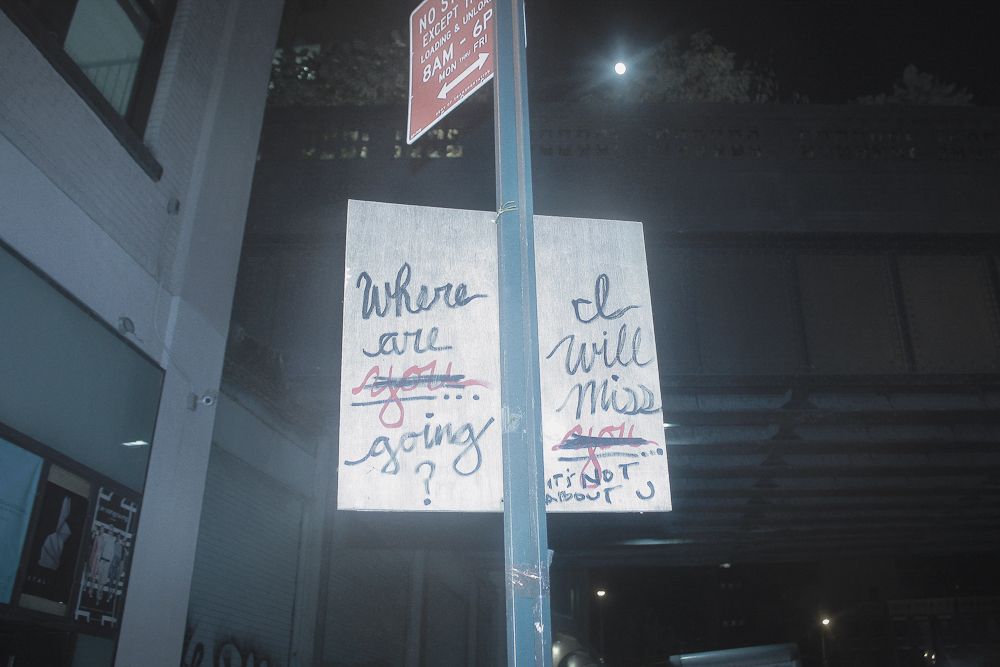 NO
EXCEPT
LOADING & UNLOA
8AM - 6P
MON THRU FRI
Where
are
you...
going
?
I
Will
Miss
you...
IT'S NOT
ABOUT U